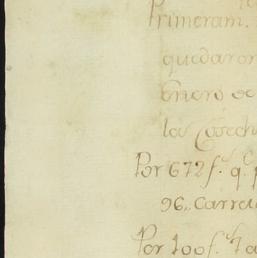 Primeram.
quedaron
Enero de
la Cosech
Por 672 f.s q.e p
96,, Carre
Por 100 f.s